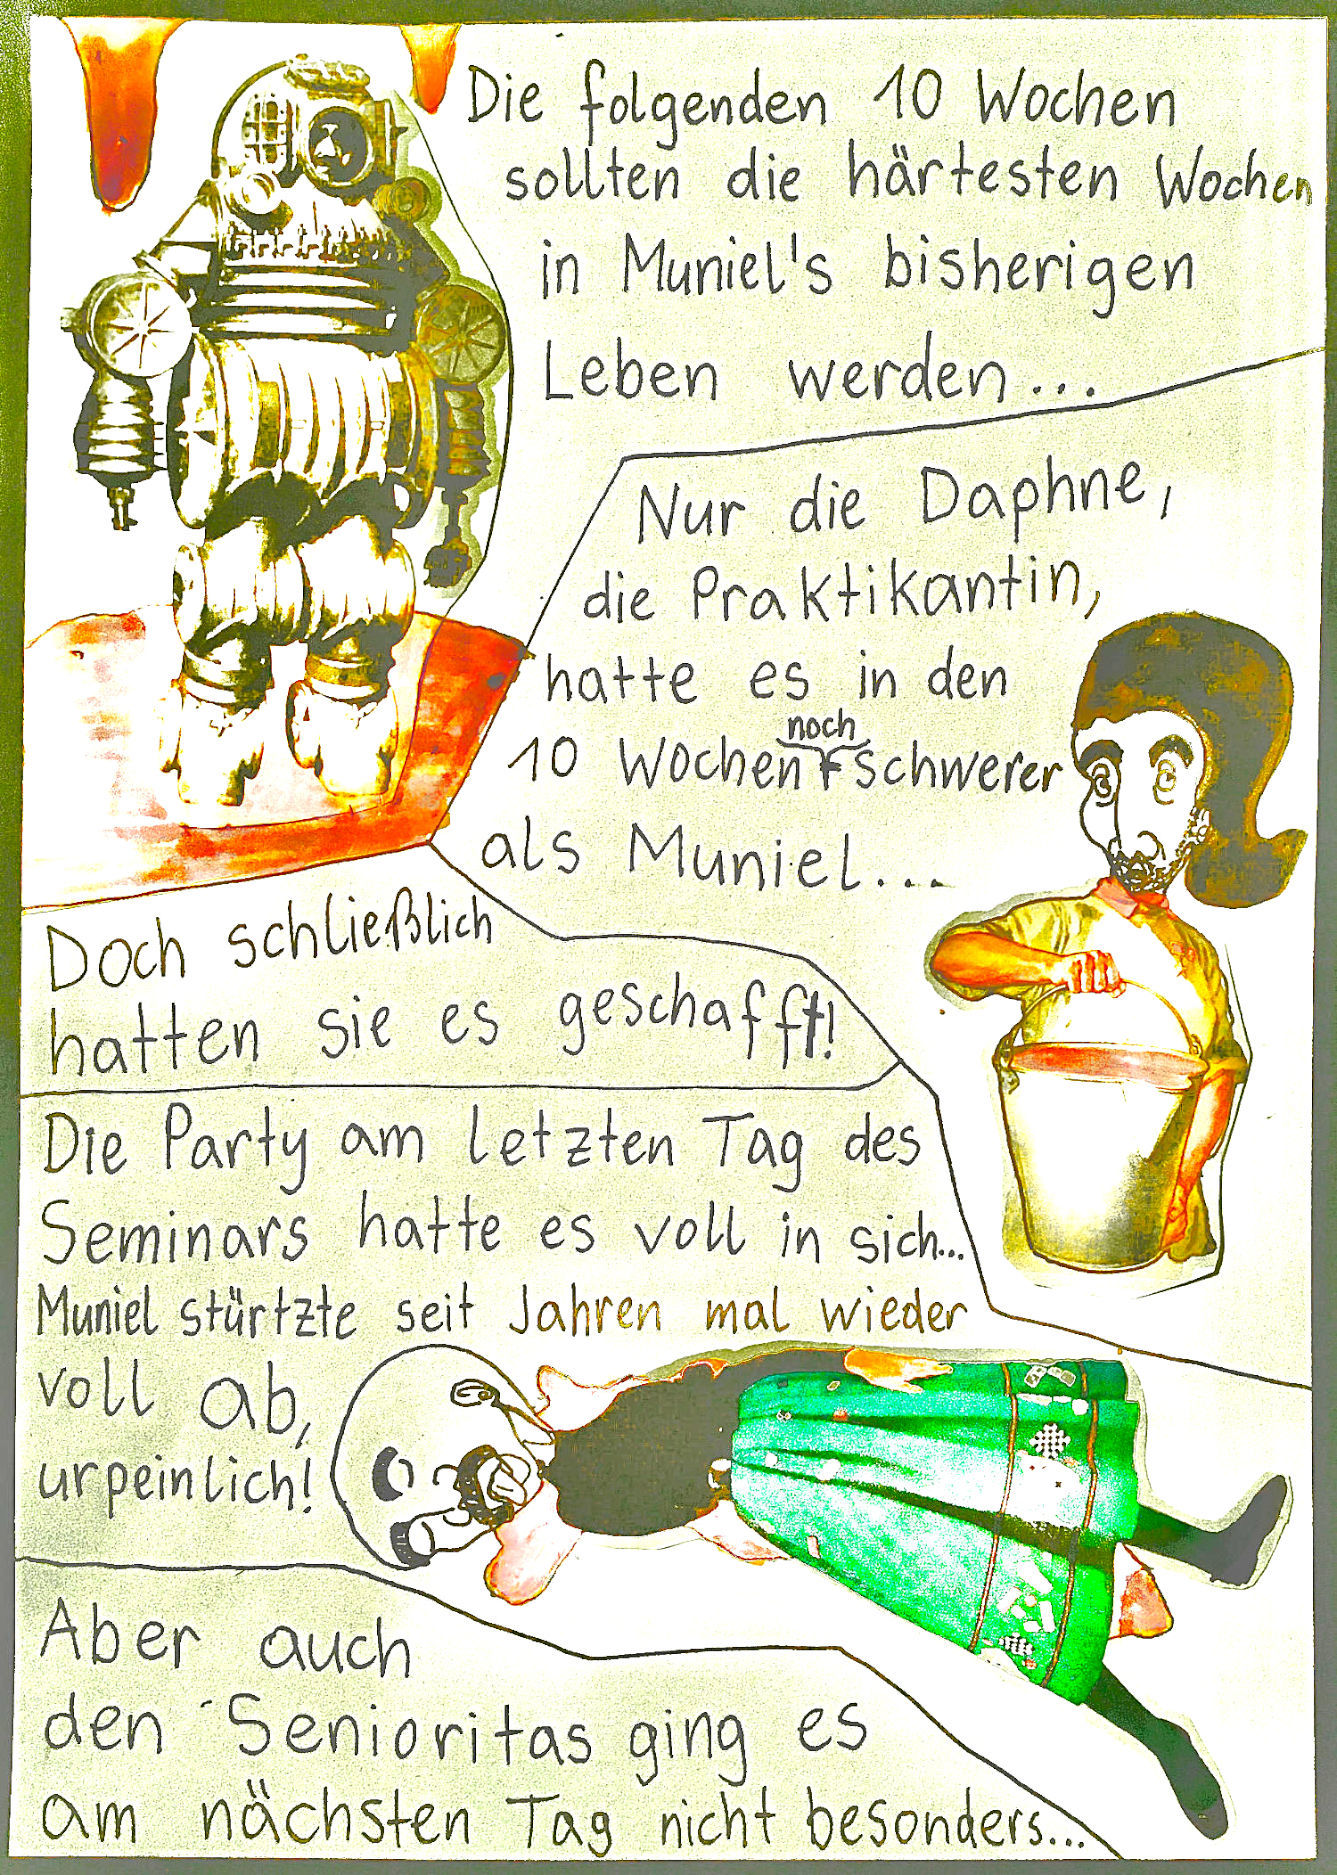 Die folgenden 10 Wochen
sollten die härtesten Wochen
in Muniel's bisherigen
Leben werden...
Nur die Daphne,
die Praktikantin,
hatte es in den
noch
10 Wochen schwerer
als Muniel...
Doch schließlich
hatten sie es geschafft!
Die Party am letzten Tag des
Seminars hatte es voll in sich...
Muniel stürtzte seit Jahren mal wieder
voll ab,
urpeinlich!
Aber auch
den Senioritas ging es
am nächsten Tag nicht besonders...